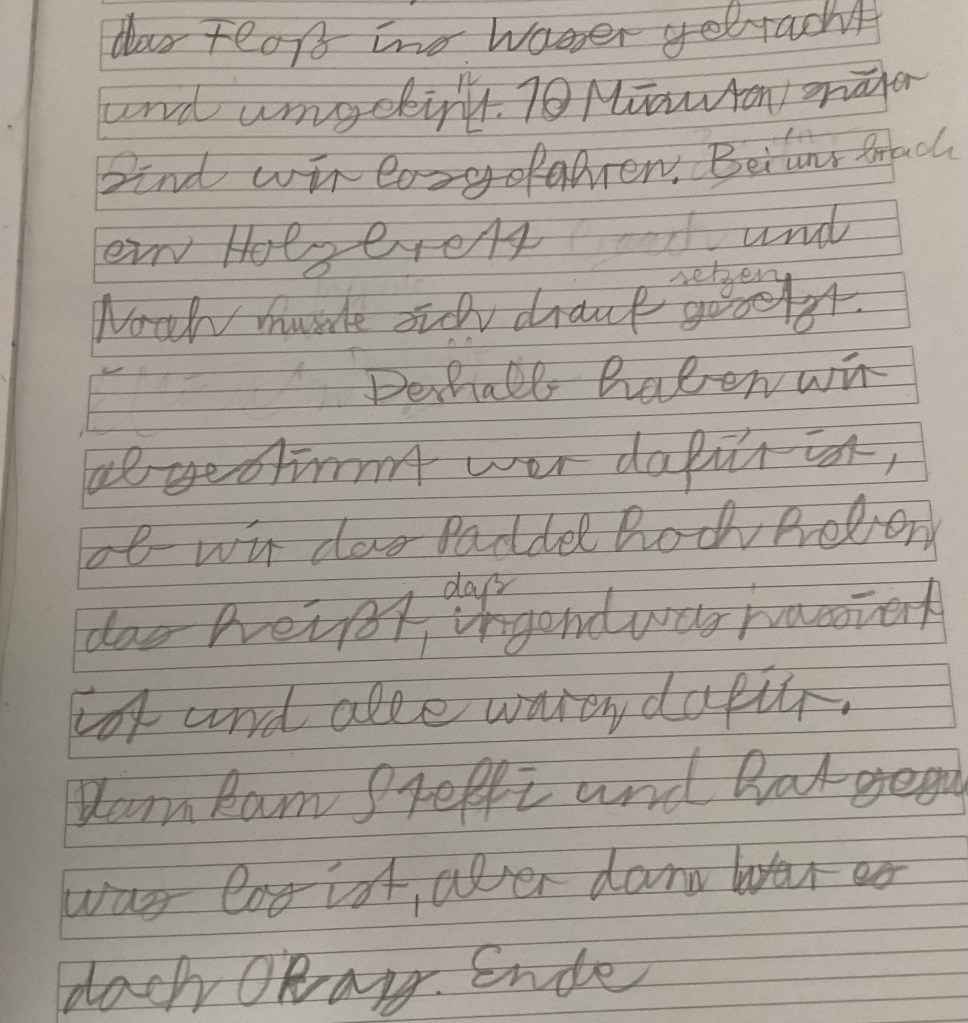 das Floß ins Wasser gebracht
und umgekippt. 10 Minuten später
Sind wir losgefahren. Bei uns brach
ein Holzbrett und
setzen
Noah musste sich drauf gesetzt.
Deshalb haben wir
abgestimmt wer dafür ist,
ob wir das Paddel hoch heben
daß
das heißt, irgendwas passiert
ist und alle waren dafür.
Dann kam Steffi und hat gegu
was los ist, aber dann war es
doch Okay. Ende